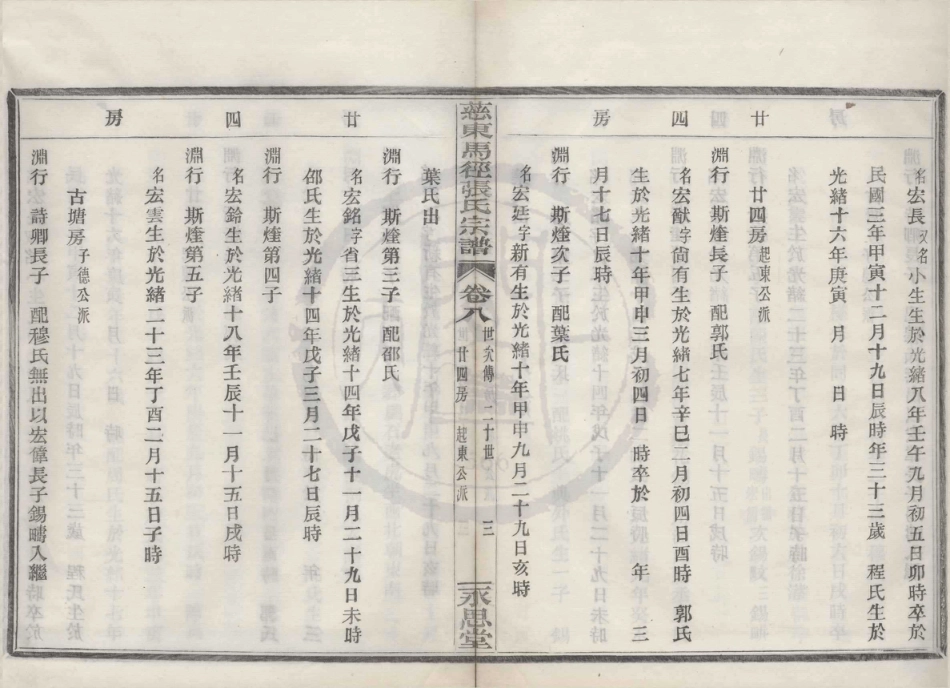 廿四房
名宏長又名小生生於光緒八年壬午九月初五日卯時卒於
民國三年甲寅十二月十九日辰時年三十三歲 程氏生於
光緒十六年庚寅 月 日 時
廿四房起東公派
淵行 斯煃長子 配郭氏
名宏猷字簡有生於光緒七年辛巳二月初四日酉時 郭氏
生於光緒十年甲申三月初四日 時卒於 年 三
月十七日辰時
淵行 斯煃次子 配葉氏
名宏延字新有生於光緒十年甲申九月二十九日亥時
慈東馬徑張氏宗譜
卷八
世次傳 二十世
廿四房 起東公派
三
永思堂
廿四房
葉氏出
淵行 斯煃第三子 配邵氏
名宏銘字省三生於光緒十四年戊子十一月二十九日未時
邵氏生於光緒十四年戊子三月二十七日辰時
淵行 斯煃第四子
名宏鈴生於光緒十八年壬辰十一月十五日戌時
淵行 斯煃第五子
名宏雲生於光緒二十三年丁酉二月十五日子時
古塘房子德公派
淵行 詩卿長子 配穆氏無出以宏偉長子錫疇入繼